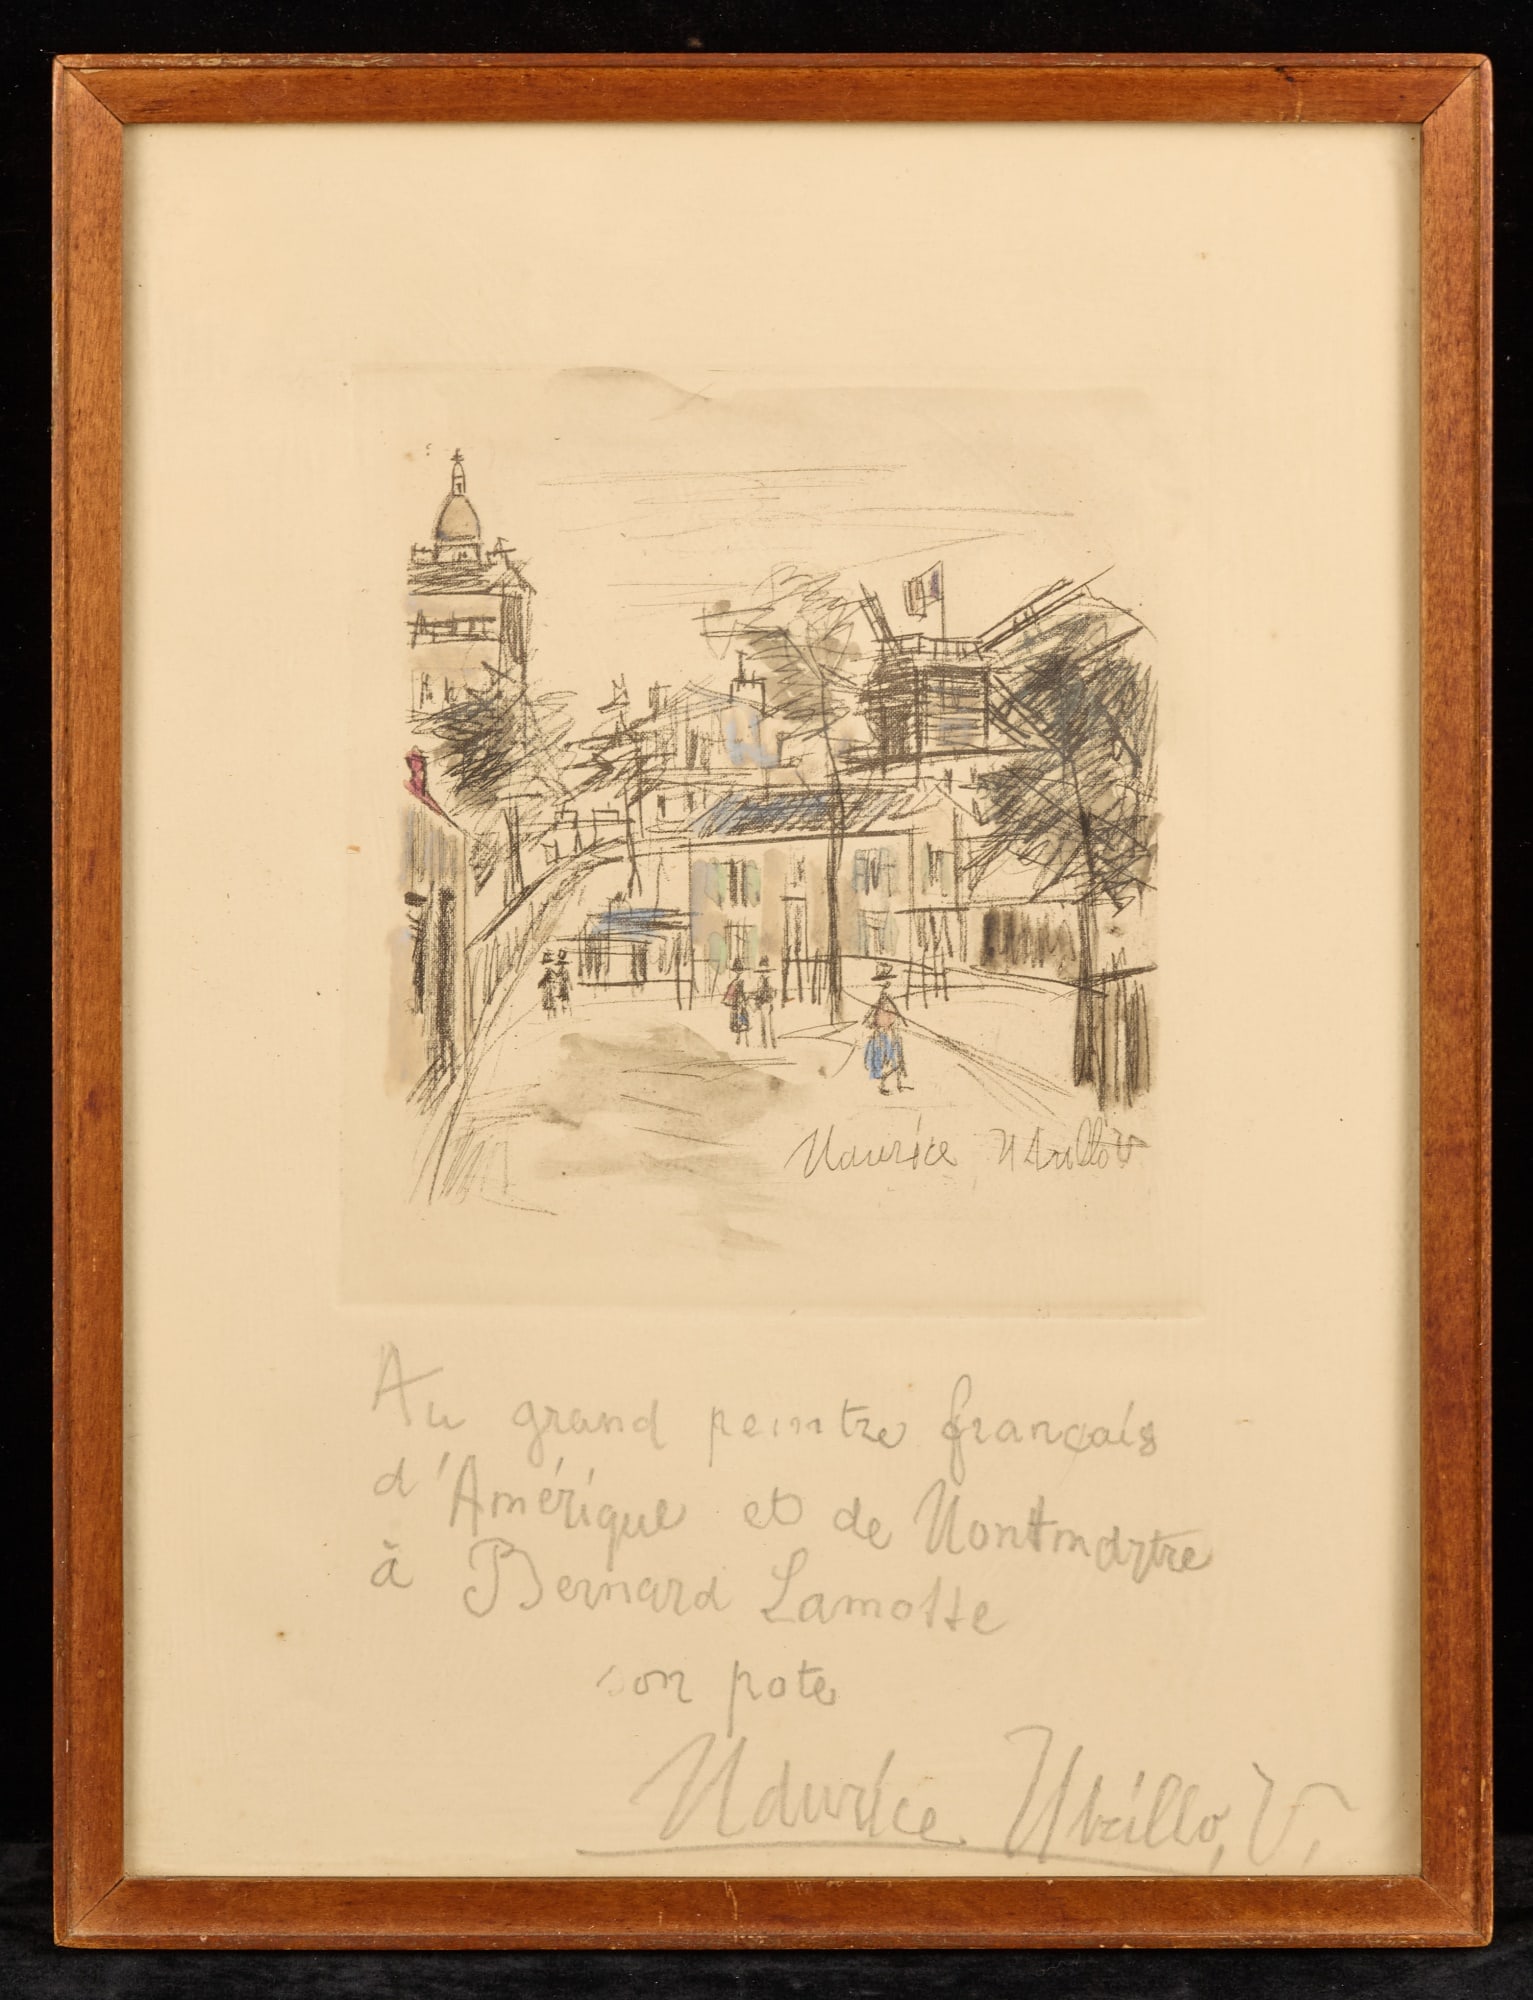 Maurice Utrillo V
Au grand peintre français
d'Amérique et de Montmartre
à Bernard Lamotte
son pote
Maurice Utrillo, V,